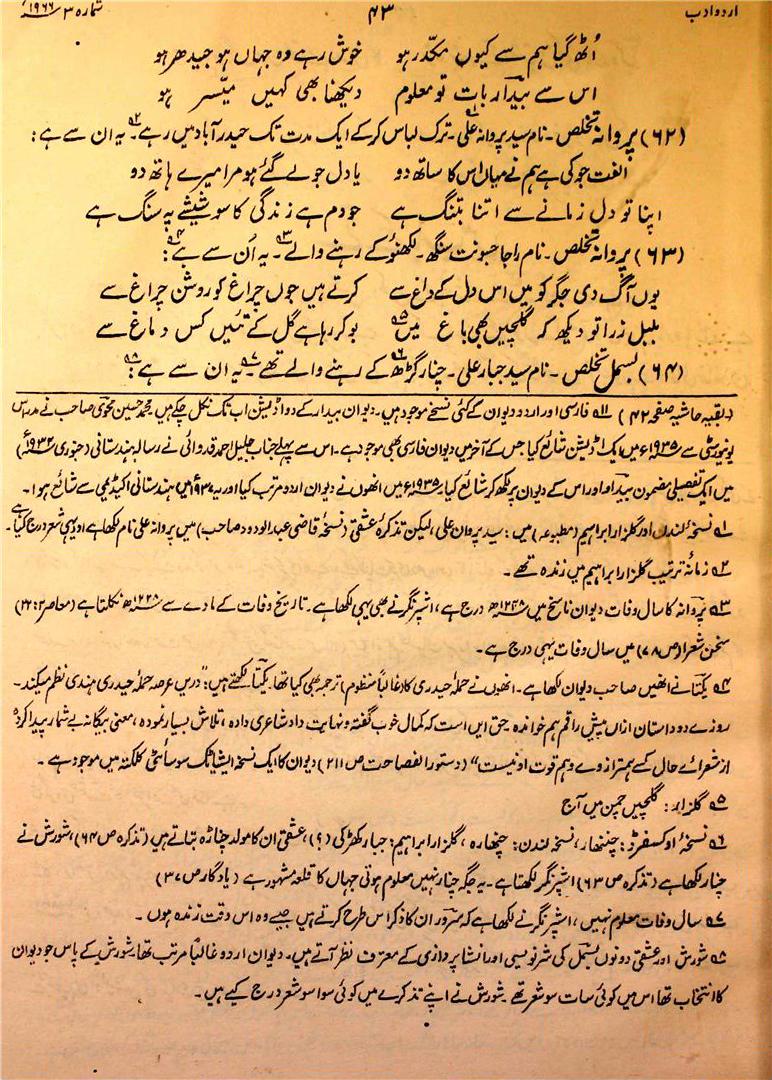 اردو ادب ۴۳ شمارہ ۳ ۱۹۶۶ء
اُٹھ گیا ہم سے کیوں مکدّر ہو خوش رہے وہ جہاں ہو جیدھر ہو
اس سے بیدؔار بات تو معلوم دیکھنا بھی کہیں میسّر ہو
(۶۲) پروانہ تخلص ۔ نام سید پروانہ علی۱ ۔ ترک لباس کر کے ایک مدت تک حیدر آباد میں رہے۲۔ یہ ان سے ہے :
الفت جو کی ہے ہم نے میاں اس کا ساتھ دو یا دل جو لے گئے ہو مرا میرے ہاتھ دو
اپنا تو دل زمانے سے اتنا بتنگ ہے جو دم ہے زندگی کا سو شیشے پہ سنگ ہے
(۶۳) پروانہ تخلص ۔ نام راجا جسونت سنگھ ۔ لکھنؤ کے رہنے والے۳ ۔ یہ اُن سے ہے۴ :
یوں آگ دی جگر کو میں اس دل کے داغ سے کرتے ہیں جوں چراغ کو روشن چراغ سے
بلبل زرا تو دیکھ کہ گلچیں بھی باغ میں۵ بو کر رہا ہے گل کے تئیں کس دماغ سے
(۶۴) بسمل تخلص ۔ نام سید جبار علی ۔ چنار گڑھ۶ کے رہنے والے تھے۷ ۔ یہ ان سے ہے۸ :
(بقیہ حاشیہ صفحہ ۴۲) ۱۱ فارسی اور اردو دیوان کے کئی نسخے موجود ہیں ۔ دیوان بیدار کے دو اڈیشن اب تک نکل چکے ہیں محمد حسین محوی صاحب نے مدراس
یونیورسٹی سے ۱۹۳۵ء میں ایک اڈیشن شائع کیا جس کے آخر میں دیوان فارسی بھی موجود ہے ۔ اس سے پہلے جناب جلیل احمد قدوائی نے رسالہ ہندستانی (جنوری ۱۹۳۲ء)
میں ایک تفصیلی مضمون بیدؔار اور اس کے دیوان پر لکھ کر شائع کیا ۔ ۱۹۳۵ء میں انھوں نے دیوان اردو مرتب کیا اور یہ ۱۹۳۷ء میں ہندستانی اکیڈیمی سے شائع ہوا ۔
۱ نسخۂ لندن اور گلزار ابراہیم (مطبوعہ) میں : سید پروان علی ، لیکن تذکرۂ عشقی (نسخۂ قاضی عبدالودود صاحب) میں پروانہ علی نام لکھا ہے اور یہی شعر درج کیا ہے ۔
۲ زمانۂ ترتیب گلزار ابراہیم میں زندہ تھے ۔
۳ پروؔانہ کا سال وفات دیوان ناسخ میں ۱۲۴۸ھ درج ہے ، اشپرنگر نے بھی یہی لکھا ہے ۔ تاریخ وفات کے مادے سے ۱۲۲۸ھ نکلتا ہے (معاصر ۲ : ۲۲)
سخن شعرا (ص ۷۸) میں سال وفات یہی درج ہے ۔
۴ یکتؔا نے انھیں صاحب دیوان لکھا ہے ۔ انھوں نے حملۂ حیدری کا (غالباً منظوم) ترجمہ بھی کیا تھا یکتؔا لکھتے ہیں : ”دریں عرصہ حملۂ حیدری ہندی نظم میکند ۔
روزے دو داستان ازاں پیش راقم ہم خواندہ حق ایں است کہ کمال خوب گفتہ و نہایت داد شاعری دادہ ، تلاش بسیار نمودہ ، معنی بیگانہ بے شمار پیدا کردہ
از شعراے حال کسے ہمتر از وے و ہم قوت او نیست“ (دستور الفصاحت ص ۲۱۱) دیوان کا ایک نسخہ ایشیاٹک سوسائٹی کلکتہ میں موجود ہے ۔
۵ گلزار : گلچیں چمن میں آج
۶ نسخۂ اوکسفرڈ : چنھار ، نسخۂ لندن : چنھارہ ، گلزار ابراہیم : جبار کھڑکی (؟) ، عشقی ان کا مولد چناڑہ بتاتے ہیں (تذکرہ ص ۶۴) ، شورش نے
چنار لکھا ہے (تذکرہ ص ۶۳) اشپرنگر لکھتا ہے ۔ یہ جگہ چنار نہیں معلوم ہوتی جہاں کا قلعہ مشہور ہے (یادگار ص ۳۷)
۷ سال وفات معلوم نہیں ، اشپرنگر نے لکھا ہے کہ سرؔور ان کا ذکر اس طرح کرتے ہیں جیسے وہ اس وقت زندہ ہوں ۔
۸ شورش اور عشقی دونوں بسمؔل کی نثر نویسی اور انشا پردازی کے معترف نظر آتے ہیں ۔ دیوان اردو غالباً مرتب تھا ، شورش کے پاس جو دیوان
کا انتخاب تھا اس میں کوئی سات سو شعر تھے شورش نے اپنے تذکرے میں کوئی سوا سو شعر درج کیے ہیں ۔